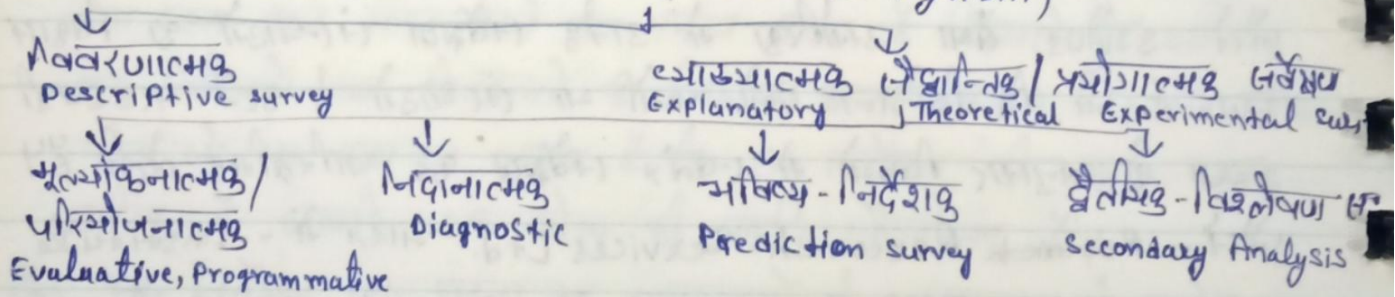 विवरणात्मक
Descriptive survey
व्याख्यात्मक सैद्धान्तिक / प्रयोगात्मक सर्वेक्षण
Explanatory Theoretical Experimental
मूल्यांकनात्मक /
परियोजनात्मक
Evaluative, Programmative
निदानात्मक
Diagnostic
भविष्य - निर्देशक
Prediction survey
द्वैतीयक - विश्लेषण
Secondary Analysis